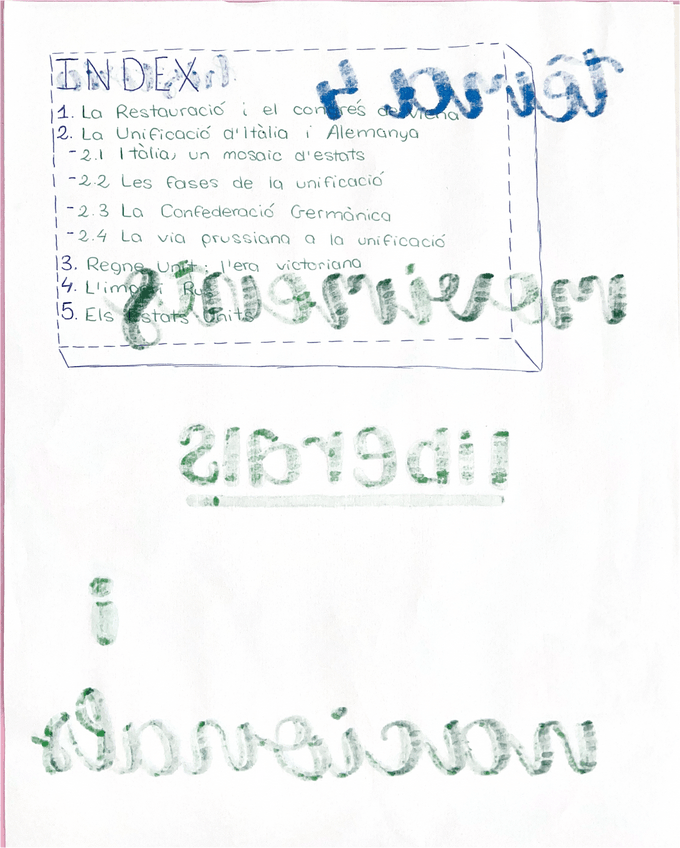 INDEX
1. La Restauració i el congrés de Viena
2. La Unificació d'Itàlia i Alemanya
-2.1 Itàlia, un mosaic d'estats
-2.2 Les fases de la unificació
-2.3 La Confederació Germànica
-2.4 La via prussiana a la unificació
3. Regne Unit: l'era victoriana
4. L'imperi Rus
5. Els Estats Units
liberals
i
nacionals